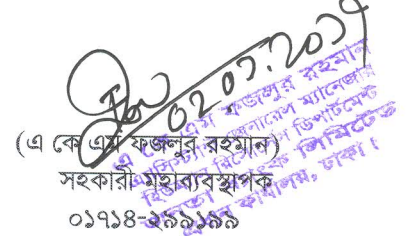 ০২.০৭.২০১৭
(এ কে এম ফজলুর রহমান)
সহকারী মহাব্যবস্থাপক
০১৭১৪-২৯৯১৯৯
এ কে এম ফজলুর রহমান
এসিস্ট্যান্ট জেনারেল ম্যানেজার
ডিপার্টমেন্ট
লিমিটেড
কার্যালয়, ঢাকা।